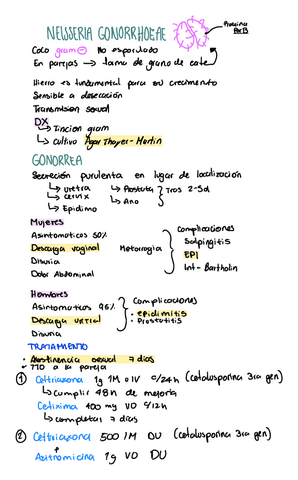 NEISSERIA GONORRHOEAE
Proteina
Por B
Coco gram ⊖ No esporulado
En parejas → forma de grano de café
Hierro es fundamental para su crecimiento
Sensible a desecación
Transmision sexual
DX
↳ Tincion gram
↳ Cultivo Agar Thayer-Martin
GONORREA
Secreción purulenta en lugar de localización
↳ Uretra ↳ Prostata
↳ Cérvix ↳ Ano
↳ Epidimo
Tras 2-5d
Mujeres
Asintomaticos 50%
Descarga vaginal
Disuria
Dolor Abdominal
Metrorragia
Complicaciones
Salpingitis
EPI
Inf- Bartholin
Hombres
Asintomaticos 95%
Descarga uretral
Disuria
Complicaciones
· epididimitis
· Prostatitis
TRATAMIENTO
· Abstinencia sexual 7 días
· TTO a la pareja
① Ceftriaxona 1g IM o IV c/24h (cefalosporina 3ra gen)
↳ Cumplir 48h de mejoria
Cefixima 400 mg VO c/12h
↳ completar 7 días
② Ceftriaxona 500 IM DU (cefalosporina 3ra gen)
+
Azitromicina 1g VO DU